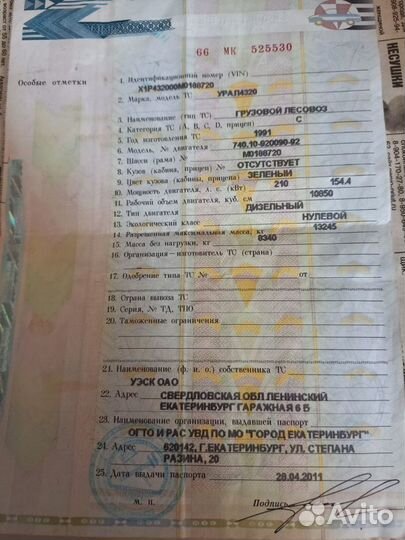 66 МК 525530
Особые отметки
1. Идентификационный номер (VIN) X1P432000M0188720
2. Марка, модель ТС УРАЛ4320
3. Наименование (тип ТС) ГРУЗОВОЙ ЛЕСОВОЗ
4. Категория ТС (А, В, С, D, прицеп) С
5. Год изготовления ТС 1991
6. Модель, № двигателя 740.10-920090-92
7. Шасси (рама) № М0188720
8. Кузов (кабина, прицеп) № ОТСУТСТВУЕТ
9. Цвет кузова (кабины, прицепа) ЗЕЛЕНЫЙ
10. Мощность двигателя, л. с. (кВт) 210 154.4
11. Рабочий объем двигателя, куб. см 10850
12. Тип двигателя ДИЗЕЛЬНЫЙ
13. Экологический класс НУЛЕВОЙ
14. Разрешенная максимальная масса, кг 13245
15. Масса без нагрузки, кг 8340
16. Организация-изготовитель ТС (страна)
17. Одобрение типа ТС № от
18. Страна вывоза ТС
19. Серия, № ТД, ТПО
20. Таможенные ограничения
21. Наименование (ф. и. о.) собственника ТС
УЭСК ОАО
22. Адрес СВЕРДЛОВСКАЯ ОБЛ ЛЕНИНСКИЙ
ЕКАТЕРИНБУРГ ГАРАЖНАЯ 6 Б
23. Наименование организации, выдавшей паспорт
ОГТО И РАС УВД ПО МО "ГОРОД ЕКАТЕРИНБУРГ"
24. Адрес 620142, Г.ЕКАТЕРИНБУРГ, УЛ. СТЕПАНА
РАЗИНА, 20
25. Дата выдачи паспорта 28.04.2011
М. П. Подпись
Avito
НЕСУШКИ